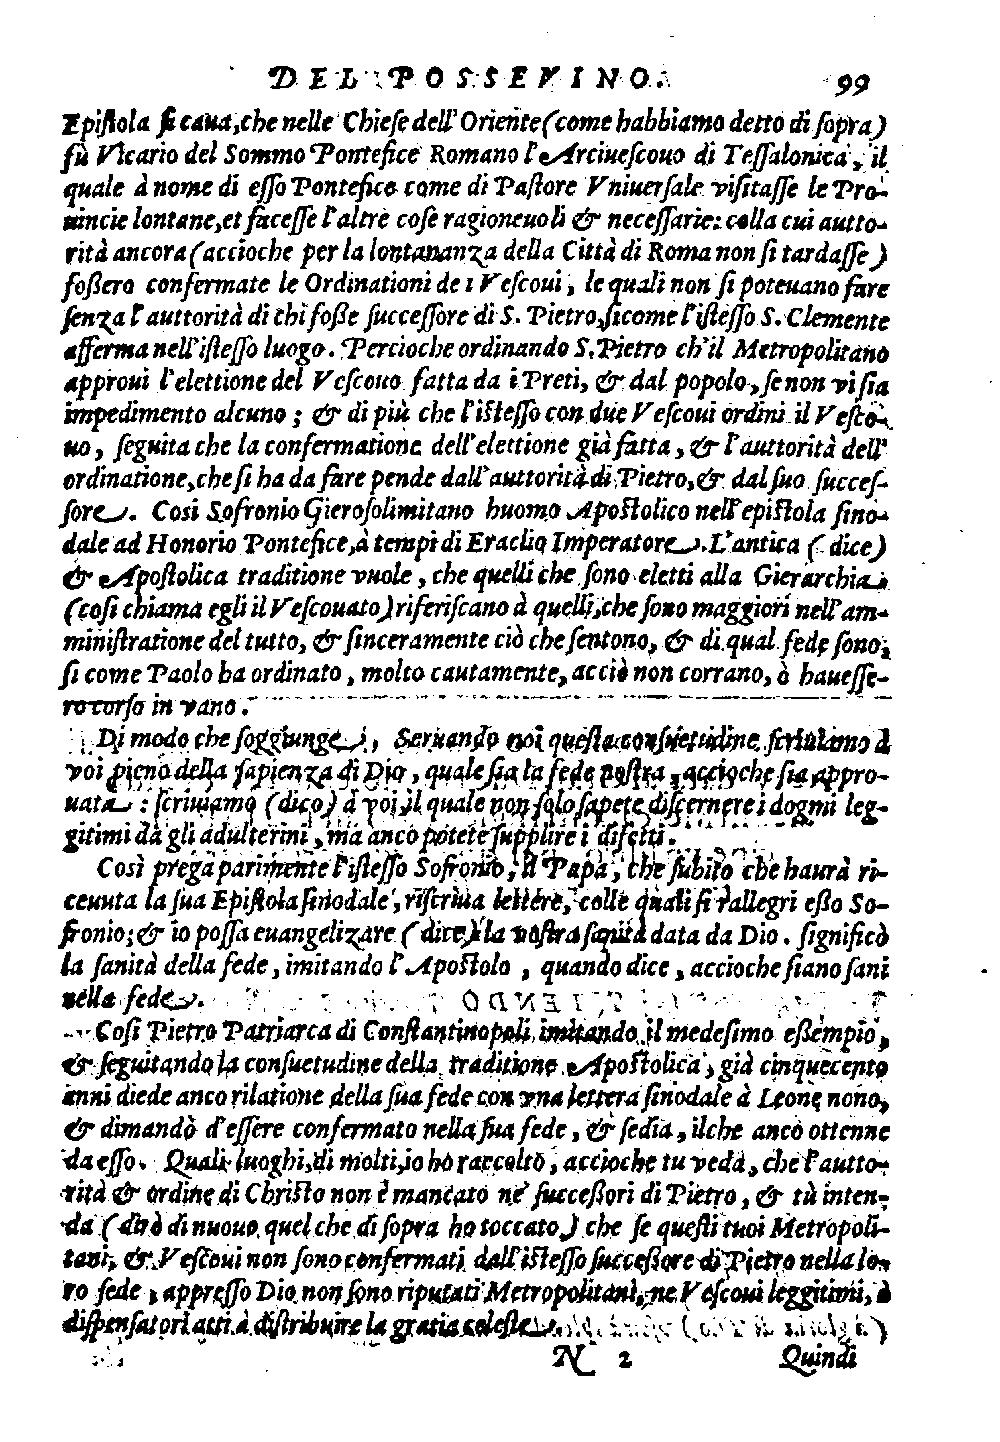 DEL POSSEVINO. 99
Epistola si caua, che nelle Chiese dell'Oriente (come habbiamo detto di sopra)
fù Vicario del Sommo Pontefice Romano l'Arciuescouo di Tessalonica, il
quale à nome di esso Pontefice come di Pastore Vniuersale visitasse le Pro-
uincie lontane, et facesse l'altre cose ragioneuoli & necessarie: colla cui autto-
rità ancora (accioche per la lontananza della Città di Roma non si tardasse)
fossero confermate le Ordinationi de i Vescoui, le quali non si poteuano fare
senza l'auttorità di chi fosse successore di S. Pietro, sicome l'istesso S. Clemente
afferma nell'istesso luogo. Percioche ordinando S. Pietro ch'il Metropolitano
approui l'elettione del Vescouo fatta da i Preti, & dal popolo, se non vi sia
impedimento alcuno; & di più che l'istesso con due Vescoui ordini il Vesco-
uo, seguita che la confermatione dell'elettione già fatta, & l'auttorità dell'
ordinatione, che si ha da fare pende dall'auttorità di Pietro, & dal suo succes-
sore. Così Sofronio Gierosolimitano huomo Apostolico nell'epistola sino-
dale ad Honorio Pontefice, à tempi di Eraclio Imperatore. L'antica (dice)
& Apostolica traditione vuole, che quelli che sono eletti alla Gierarchia
(così chiama egli il Vescouato) riferiscano à quelli, che sono maggiori nell'am-
ministratione del tutto, & sinceramente ciò che sentono, & di qual fede sono,
si come Paolo ha ordinato, molto cautamente, acciò non corrano, ò hauesse-
ro corso in vano.
Di modo che soggiunge, Seruando noi questa consuetudine scriuiamo à
voi pieno della sapienza di Dio, quale sia la fede nostra, accioche sia appro-
uata: scriuiamo (dico) à voi, il quale non solo sapete discernere i dogmi leg-
gitimi da gli adulterini, ma anco potete supplire i difetti.
Così prega parimente l'istesso Sofronio, il Papa, che subito che haurà ri-
ceuuta la sua Epistola sinodale, riscriua lettere, colle quali si rallegri esso So-
fronio; & io possa euangelizare (dice) la vostra sanità data da Dio. significò
la sanità della fede, imitando l'Apostolo, quando dice, accioche siano sani
nella fede.
Così Pietro Patriarca di Constantinopoli, imitando il medesimo essempio,
& seguitando la consuetudine della traditione Apostolica, già cinquecento
anni diede anco rilatione della sua fede con vna lettera sinodale à Leone nono,
& dimandò d'essere confermato nella sua fede, & sedia, ilche anco ottenne
da esso. Quali luoghi, di molti, io hò raccolto, accioche tu veda, che l'autto-
rità & ordine di Christo non è mancato ne' successori di Pietro, & tù inten-
da (dirò di nuouo quel che di sopra ho toccato) che se questi tuoi Metropoli-
tani, & Vescoui non sono confermati dall'istesso successore di Pietro nella lo-
ro fede, appresso Dio non sono riputati Metropolitani, ne Vescoui leggitimi, ò
dispensatori atti à distribuire la gratia celeste.
N 2 Quindi